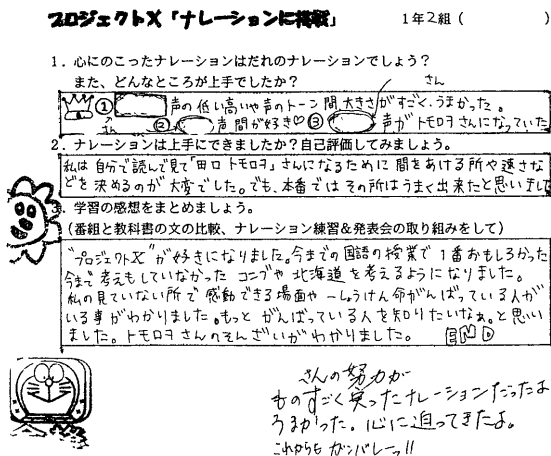 プロジェクトX「ナレーションに挑戦」 1年2組( )
1．心にのこったナレーションはだれのナレーションでしょう？
また、どんなところが上手でしたか？
さん
① 声の低い高いや声のトーン 間、大きさがすごく、うまかった。
さん ② 声、間が好き♡ ③ 声がトモロヲさんになっていた
2．ナレーションは上手にできましたか？自己評価してみましょう。
私は自分で読んで見て「田口トモロヲ」さんになるために間をあける所や速さな
どを決めるのが大変でした。でも、本番ではその所はうまく出来たと思いまし
3．学習の感想をまとめましょう。
（番組と教科書の文の比較、ナレーション練習＆発表会の取り組みをして）
"プロジェクトX"が好きになりました。今までの国語の授業で1番おもしろかった
今まで考えもしていなかったコンブや北海道を考えるようになりました。
私の見ていない所で感動できる場面や一しょうけん命がんばっている人が
いる事がわかりました。もっとがんばっている人を知りたいなぁ。と思い
ました。トモロヲさんのそんざいがわかりました。 END
さんの努力が
ものすごく実ったナレーションだったよ
うまかった。心に迫ってきたよ。
これからもガンバレーっ!!